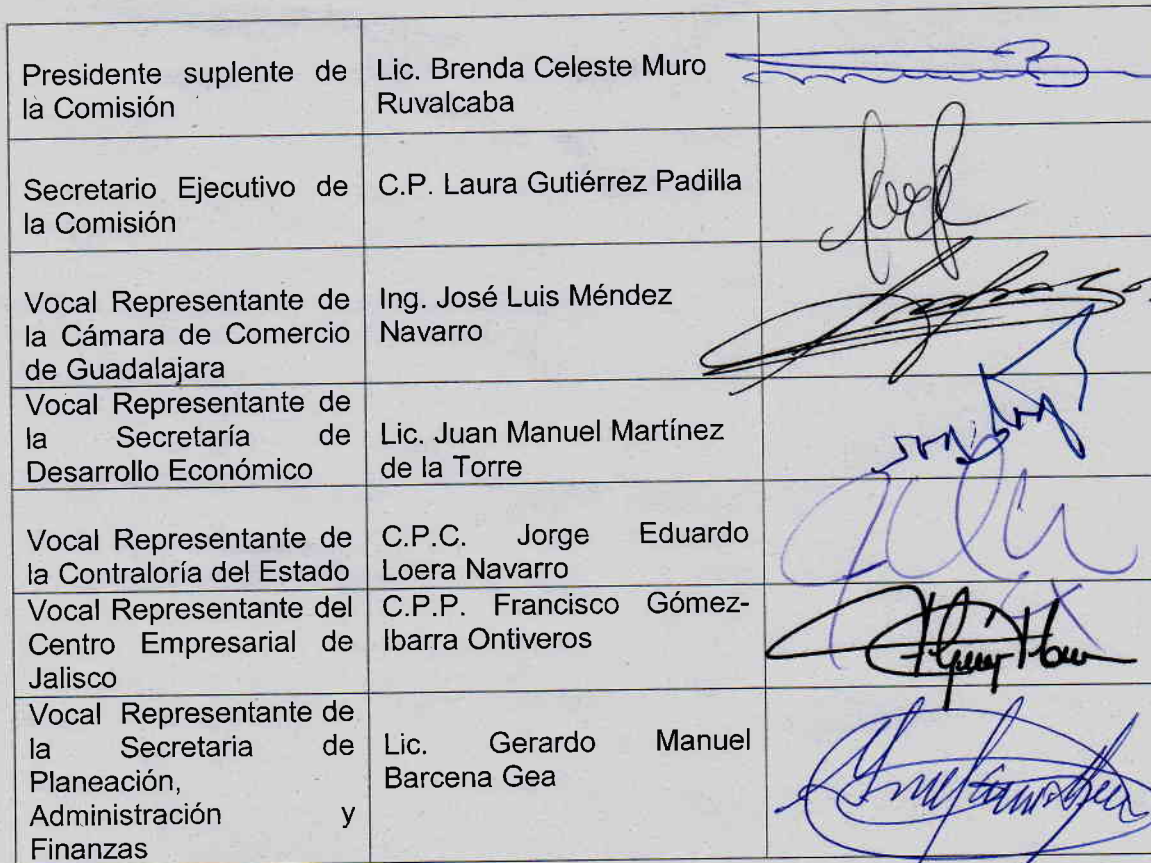 Presidente suplente de
la Comisión
Lic. Brenda Celeste Muro
Ruvalcaba
Secretario Ejecutivo de
la Comisión
C.P. Laura Gutiérrez Padilla
Vocal Representante de
la Cámara de Comercio
de Guadalajara
Ing. José Luis Méndez
Navarro
Vocal Representante de
la Secretaría de
Desarrollo Económico
Lic. Juan Manuel Martínez
de la Torre
Vocal Representante de
la Contraloría del Estado
C.P.C. Jorge Eduardo
Loera Navarro
Vocal Representante del
Centro Empresarial de
Jalisco
C.P.P. Francisco Gómez-
Ibarra Ontiveros
Vocal Representante de
la Secretaria de
Planeación,
Administración y
Finanzas
Lic. Gerardo Manuel
Barcena Gea